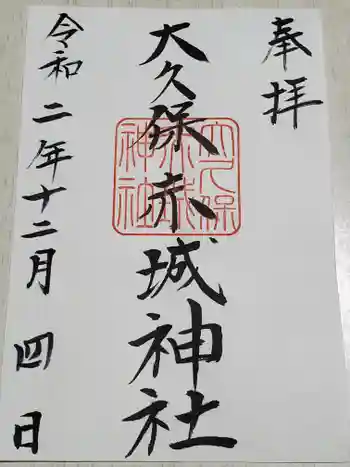 奉拝
大久保赤城神社
大久保
赤城
神社
令和二年十二月四日